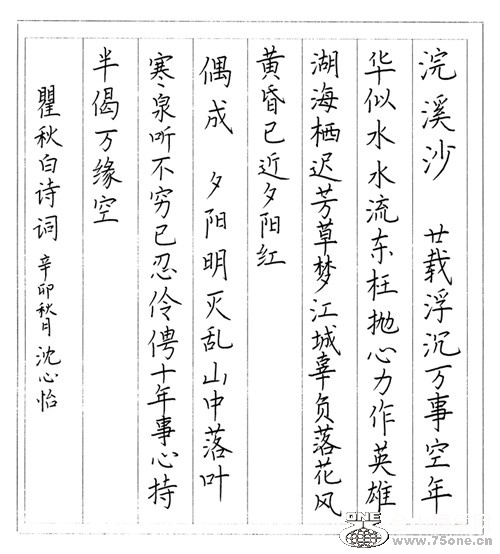 浣溪沙 廿载浮沉万事空年
华似水水流东枉抛心力作英雄
湖海栖迟芳草梦江城辜负落花风
黄昏已近夕阳红
偶成 夕阳明灭乱山中落叶
寒泉听不穷已忍伶俜十年事心持
半偈万缘空
瞿秋白诗词 辛卯秋月 沈心怡
ONE
www.75one.cn